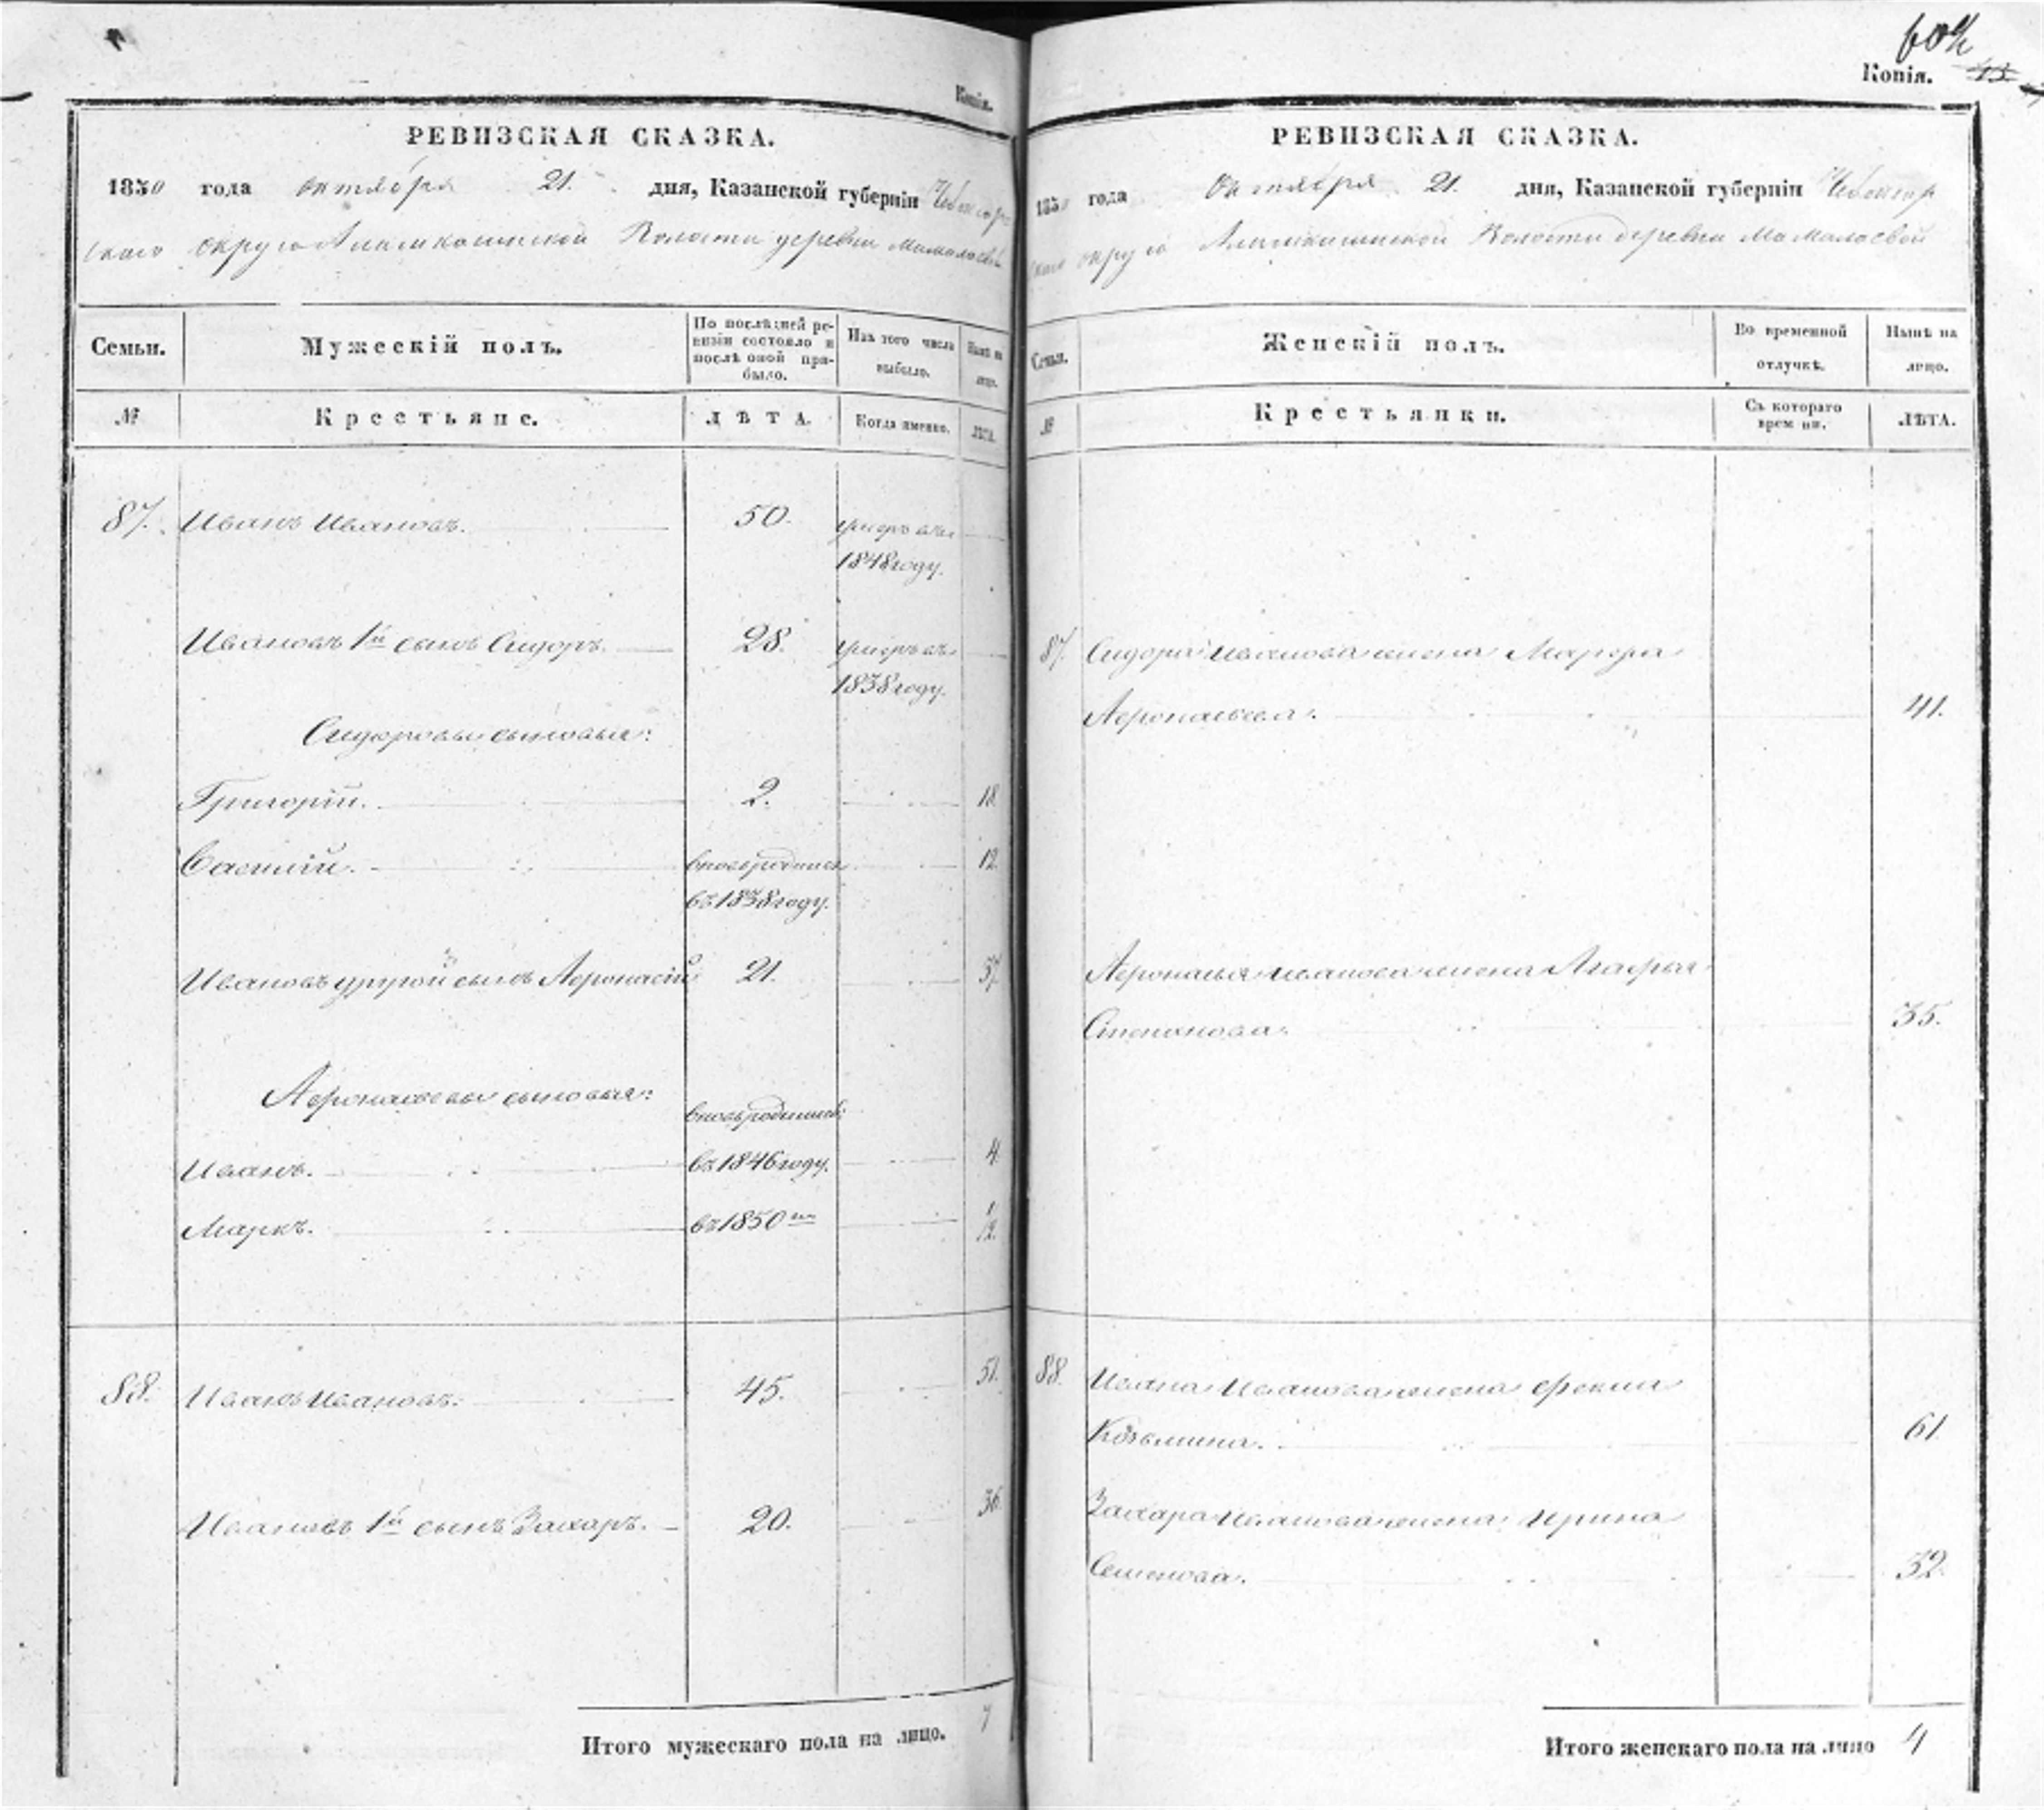 Копія.
РЕВИЗСКАЯ СКАЗКА.
1850 года октября 21. дня, Казанской губерніи Чебоксар
скаго округа Алымкасинской Волости деревни Мамалаевой
Семьи. Мужескій полъ. По послѣдней ре-
визіи состояло и
послѣ оной при-
было. Изъ того числа
выбыло. Нынѣ на
лицо.
№ Крестьяне. ЛѢТА. Когда именно. ЛѢТА.
87. Иванъ Ивановъ. 50. умеръ въ
1848 году.
Ивановъ 1й сынъ Сидоръ. 28. умеръ въ
1838 году.
Сидоровы сыновья:
Григорій. 2. 18.
Василій. вновь родился 12.
въ 1838 году.
Ивановъ другой сынъ Афонасій 21. 37.
Афонасьевы сыновья:
вновь родились
Иванъ. въ 1846 году. 4.
Маркъ. въ 1850 1/12.
88. Иванъ Ивановъ. 45. 51.
Ивановъ 1й сынъ Захаръ. 20. 36.
Итого мужескаго пола на лицо. 7
60
Копія. 43
РЕВИЗСКАЯ СКАЗКА.
1850 года Октября 21. дня, Казанской губерніи Чебоксар
скаго округа Алымкасинской Волости деревни Мамалаевой
Семьи. Женскій полъ. Во временной
отлучкѣ. Нынѣ на
лицо.
№ Крестьянки. Съ котораго
врем ни. ЛѢТА.
87. Сидора Иванова жена Марфа
Афонасьева. 41.
Афонасья Иванова жена Агафья
Степанова. 35.
88. Ивана Иванова жена Фекла
Козьмина. 61.
Захара Иванова жена Ирина
Семенова. 32.
Итого женскаго пола на лицо 4